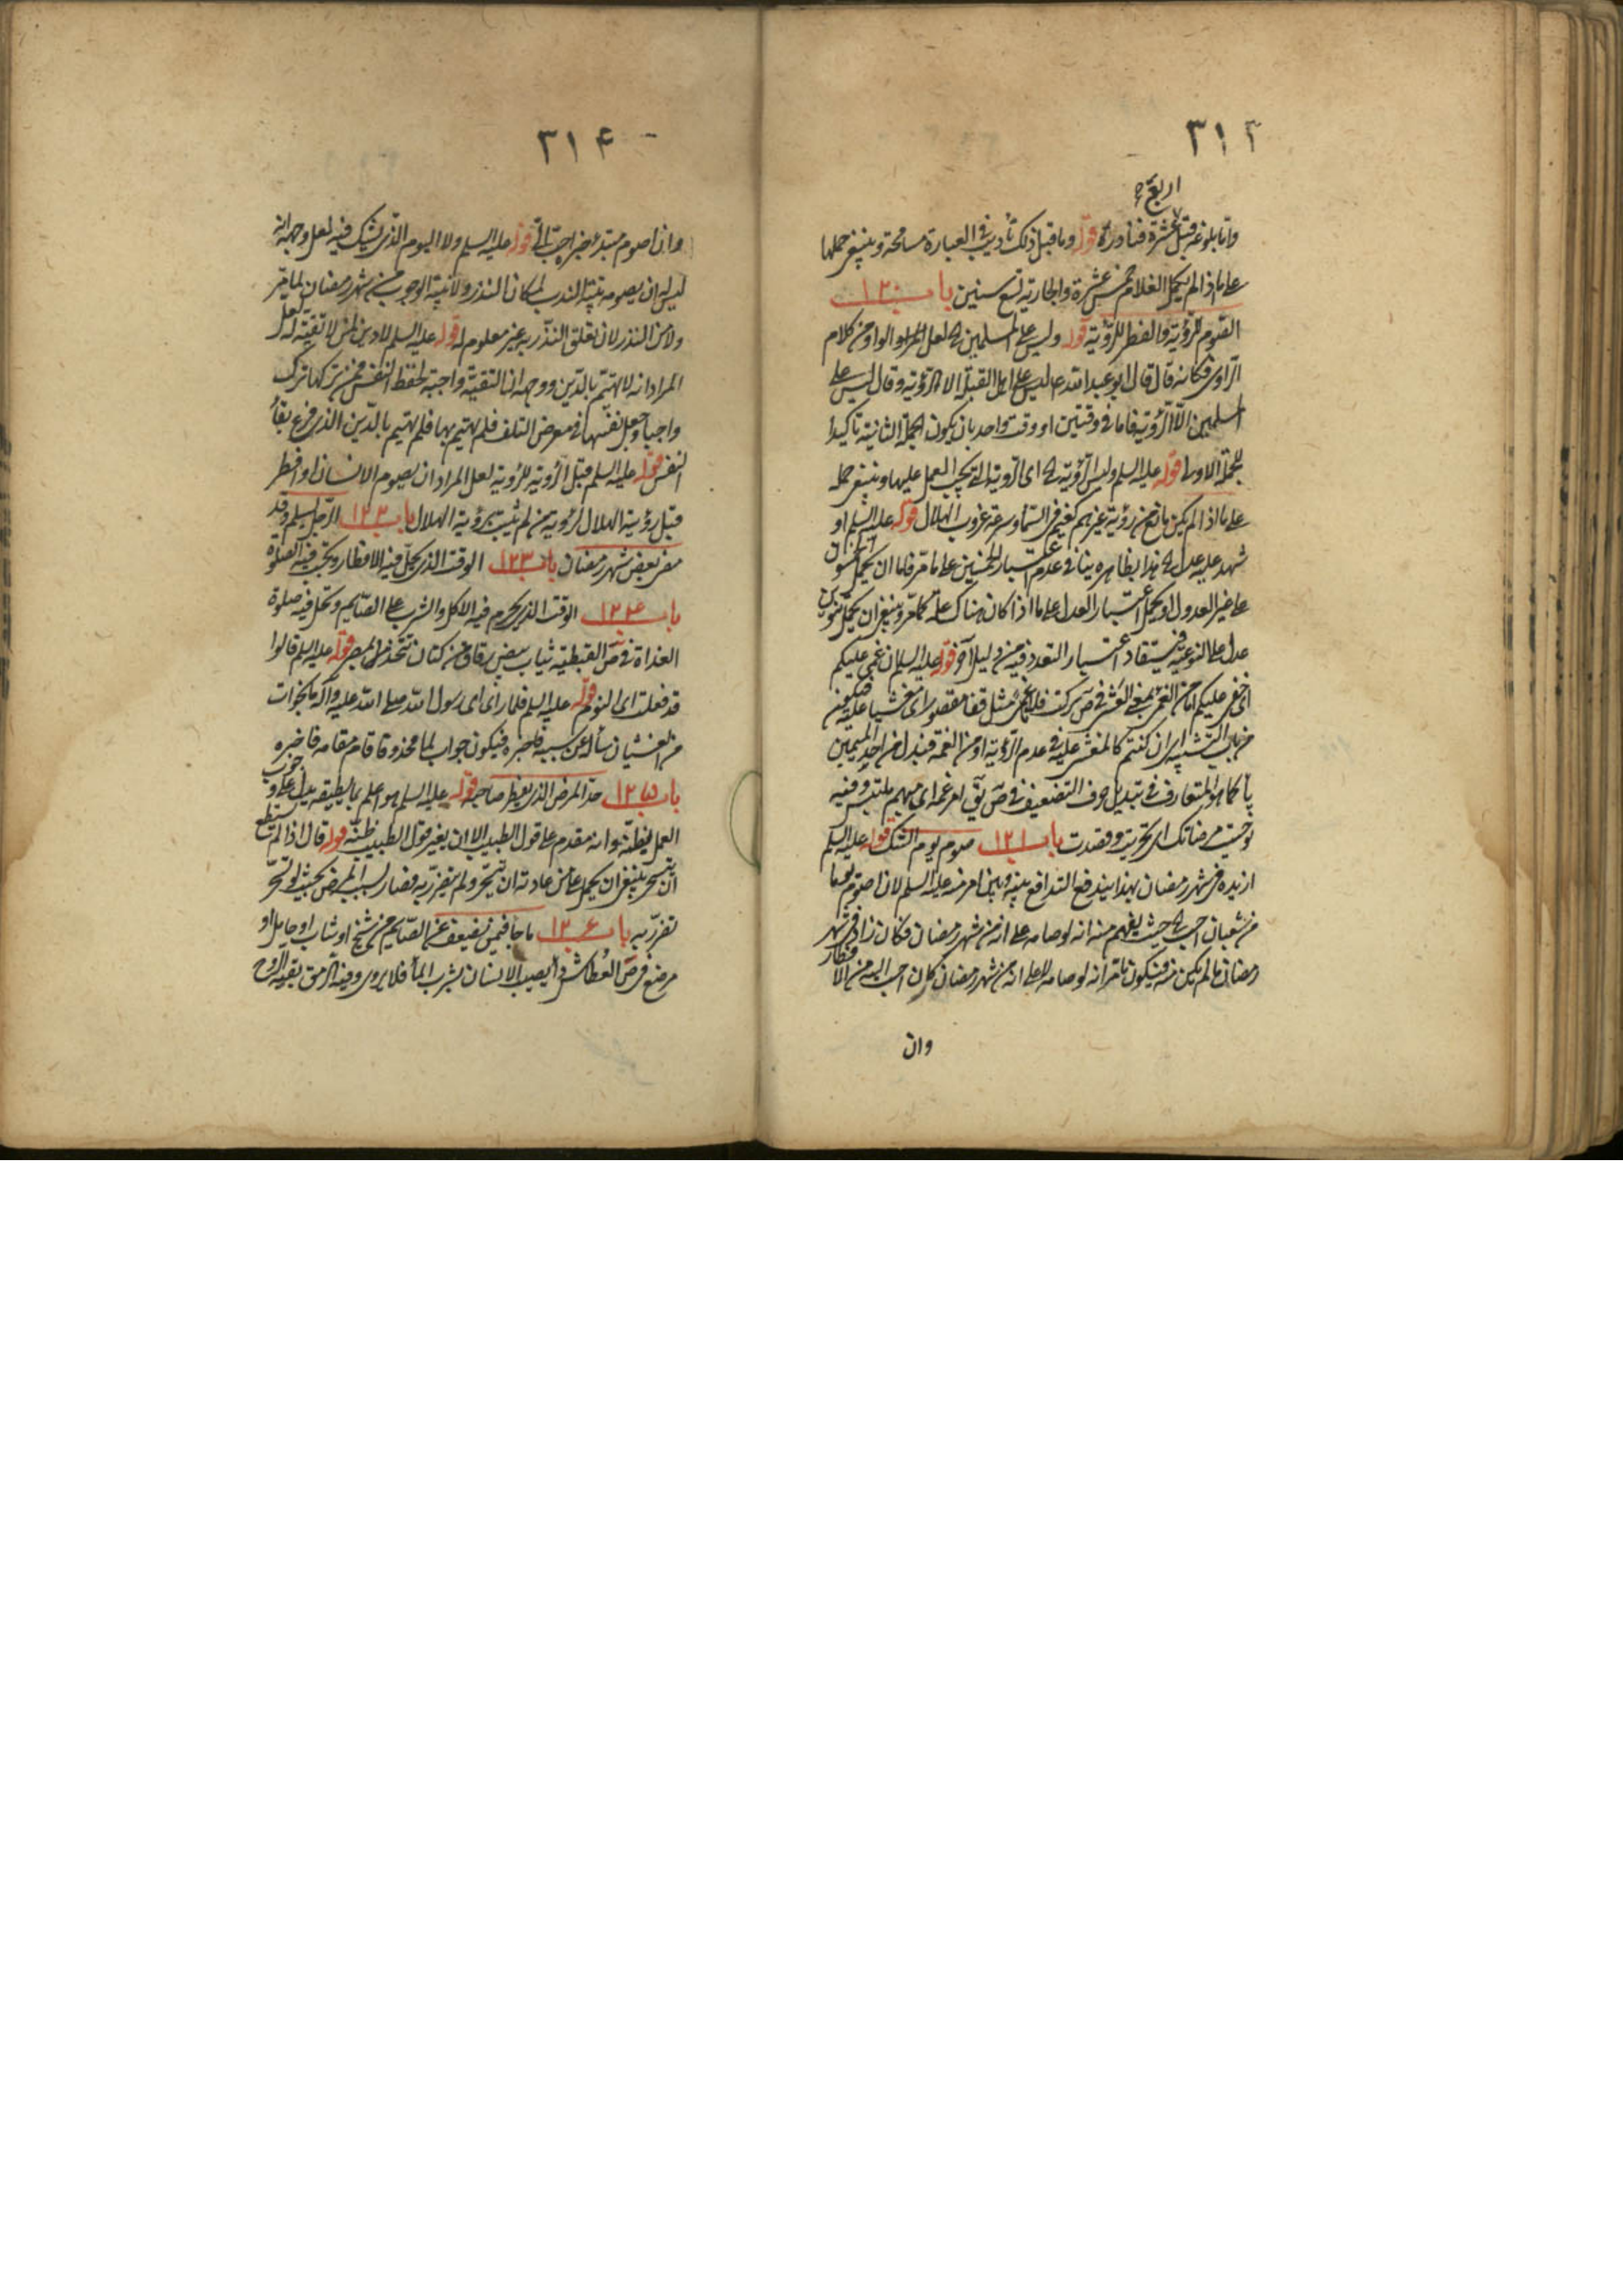 ٣١٣
اربع
واما بلوغه قبل عشرة فنادرة قوله وما قبل ذلك تأديب في العبارة مسامحة وينبغي حملها
على ما اذا لم يكمل الغلام خمس عشرة والجارية تسع سنين باب ١٢٠
الصوم للرؤية والفطر للرؤية قوله وليس على المسلمين لعل الواو من كلام
الراوي فكانه قال قال ابو عبد الله ع ليس على اهل القبلة الا الرؤية وقال ليس على
المسلمين الا الرؤية فاما في وقتين او وقت واحد بان يكون الجملة الثانية تأكيدا
للجملة الاولى قوله عليه السلم وليس الرؤية اى الرؤية التي يجب العمل عليها وينبغي حمله
على ما اذا لم يكن مانع من رؤية غيرهم كغيم في السماء وسرعة غروب الهلال قوله عليه السلم او
شهد عليه عدل هذا بظاهره ينافي عدم اعتبار الخمسين على ما مر فاما ان يحمل
على غير العدول او يحمل اعتبار العدل على ما اذا كان هناك علة كما مر وينبغي ان يحمل تنوين
عدل على النوعية فيستفاد اعتبار التعدد فيه من دليل آخر قوله عليه السلم ان غمي عليكم
اى خفي عليكم اما من الغمي بمعنى الغشي في ص
من باب التشبيه اى ان كنتم كالمغشي عليه في عدم الرؤية او من الغمة فبدل من احد الميمين
ياء كما هو المتعارف في تبديل حروف التضعيف في ص يق امر غمة اى مبهم ملتبس وفيه
توخيت مرضاتك اى تحريت وقصدت باب ١٢١ صوم يوم الشك قوله عليه السلم
ازيده في شهر رمضان بهذا يندفع التدافع بينه وبين امر منه عليه السلم لان اصوم يوما
من شعبان احب حيث يفهم منه انه لو صامه على انه من شهر رمضان فكان زاد في شهر
رمضان ما لم يكن منه فيكون ما مر انه لو صامه لا على انه من شهر رمضان كان احب اليه من الافطار
وان
٣١۴
وان اصوم مبتدء خبره احب الي قوله عليه السلم ولا اليوم الذي يشك فيه لعل وجهه انه
ليس له ان يصومه بنية الندب لمكان النذر ولا بنية الوجوب من شهر رمضان لما مر
ولا من النذر لان تعلق النذر به غير معلوم له قوله عليه السلم لا دين لمن لا تقية له لعل
المراد انه لا يهتم بالدين ووجهه ان التقية واجبة لحفظ النفس فمن تركها ترك
واجبا وجعل نفسه في معرض التلف فلم يهتم بها فلم يهتم بالدين الذي فرع بقاء
النفس قوله عليه السلم قبل الرؤية للرؤية لعل المراد ان يصوم الانسان او افطر
قبل رؤية الهلال لرؤية من لم يثبت برؤية الهلال باب ١٢٢ الرجل يسلم وقد
مضى بعض شهر رمضان باب ١٢٣ الوقت الذي يحل فيه الافطار وتجب فيه الصلوة
باب ١٢۴ الوقت الذي يحرم فيه الاكل والشرب على الصائم وتحل فيه صلوة
الغداة في ص القبطية ثياب بيض رقاق من كتان تتخذ في مصر قوله عليه السلم قالوا
قد فعلت اى النوم قوله عليه السلم فلما راى اى رسول الله صلى الله عليه وآله
من الغشيان سأل عن سببه فاخبره فيكون جواب لما محذوفا قام مقامه فاخبره
باب ١٢۵ حد المرض الذي يفطر صاحبه قوله عليه السلم هو اعلم بما يطيقه يدل على وجوب
العمل بظنه وانه مقدم على قول الطبيب الا ان يغير قول الطبيب ظنه قوله قال اذا لم يستطع
ان يتسحر ينبغي ان يحمل على من عادته ان يتسحر ولم يتضرر به فصار بسبب المرض بحيث لو تسحر
تضرر به باب ١٢۶ ما جاء فيمن يضعف عن الصيام من شيخ او شاب او حامل او
مرضع في ص العطاش داء يصيب الانسان يشرب الماء فلا يروى وفيه الرمق بقية الروح